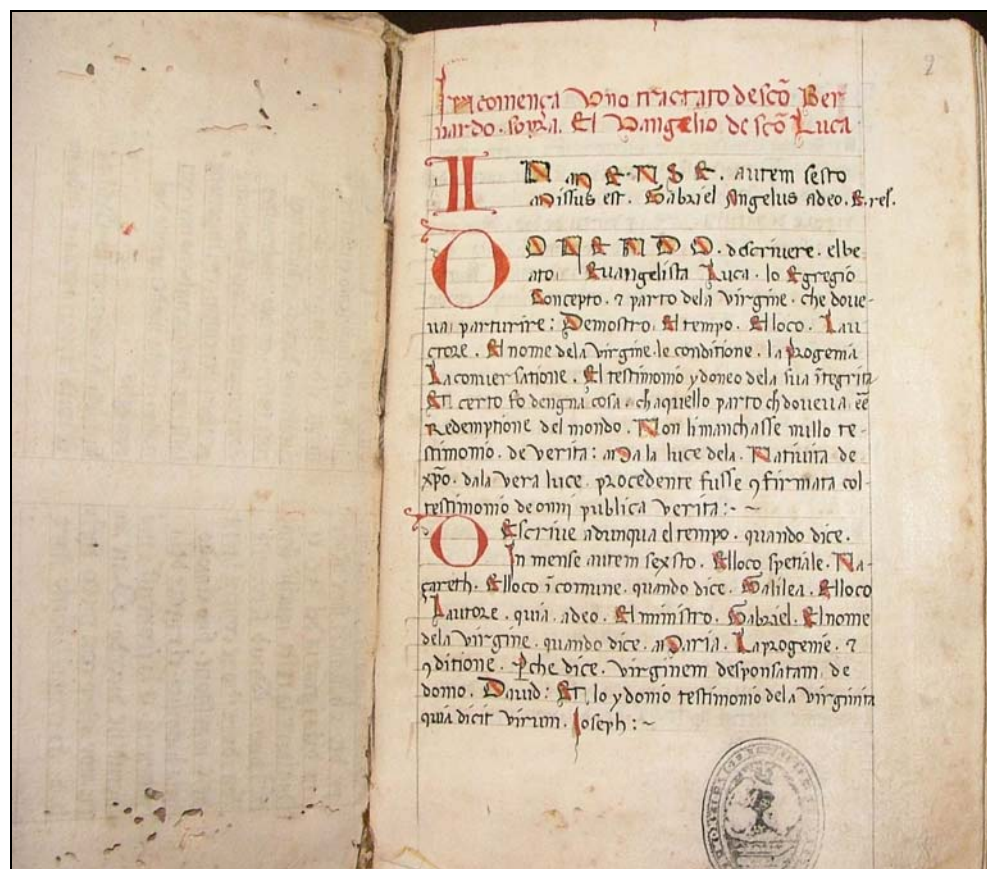 Incomença Uno tractato de scõ Ber
nardo. sovra. El Vangelio de scõ Luca
IN MENSE. autem sesto
Missus est. Gabriel Angelus adeo. &. rel.
VOLENDO. descrivere. elbe
ato. Evangelista Luca. lo Egregio
Concepto. ⁊ parto dela virgine. che dove-
va parturire: Demostro. El tempo. El loco. Lau
ctore. El nome dela virgine. le conditione. la progenia
La conversatione. El testimonio ydoneo dela sua ĩtegrita
Et certo fo dengna cosa. ch aquello parto ch doveva. eẽ
Redemptione del mondo. Non li manchasse nullo te-
stimonio. de verita: Ma la luce dela. Nativita de
xpõ. dala vera luce. procedente fusse ꝯfirmata col-
testimonio de omni publica verita:- ~
DEscrive adunqua el tempo. quando dice.
In mense autem sexto. El loco spetiale. Na-
çareth. El loco ĩ comune. quando dice. Galilea. El loco
Lautore. quia. adeo. El ministro. Gabriel. El nome
dela virgine. quando dice. Maria. La progenie. ⁊
ꝯditione. Ꝑche dice. virginem desponsatam. de
domo. David: Et. lo ydonio testimonio dela virginita
quia dicit virum. Ioseph: ~